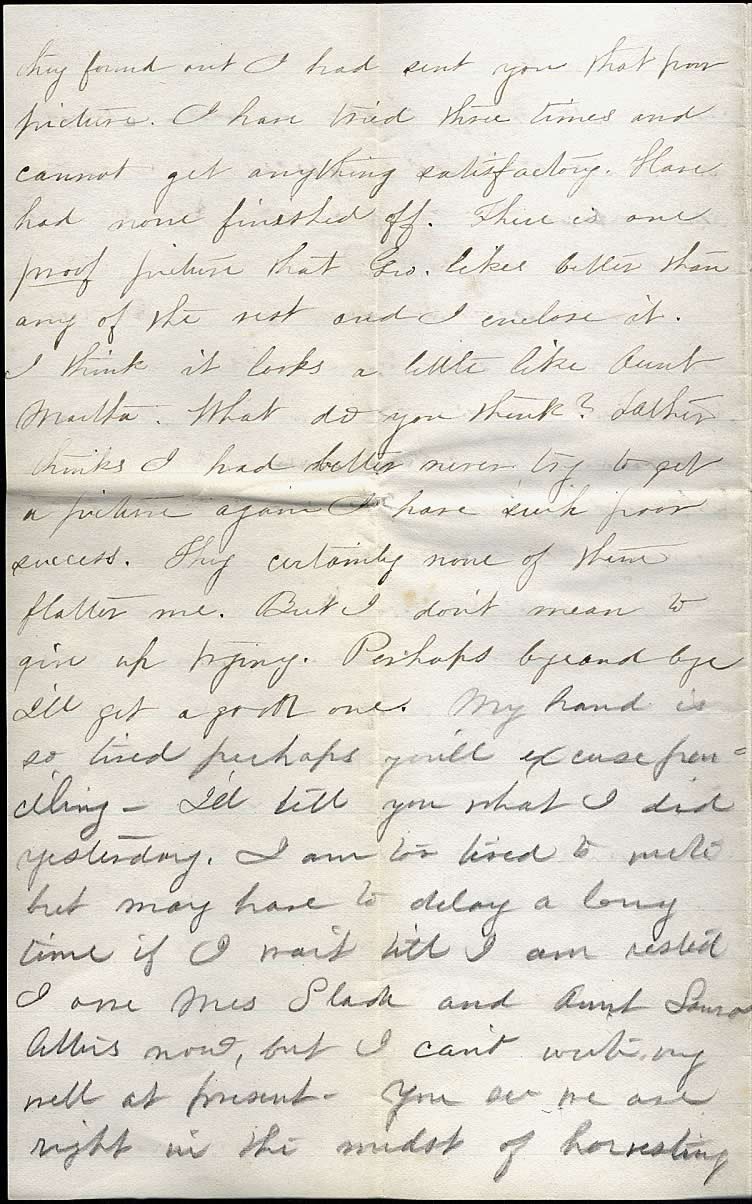 they found out I had sent you that poor
picture. I have tried three times and
cannot get anything satisfactory. Have
had none finished off. There is one
proof picture that Geo. likes better than
any of the rest and I enclose it.
I think it looks a little like Aunt
Martha. What do you think? Father
thinks I had better never try to get
a picture again I have such poor
success. They certainly none of them
flatter me. But I don't mean to
give up trying. Perhaps bye and bye
I'll get a good one. My hand is
so tired perhaps you'll excuse pen=
ciling - I'll tell you what I did
yesterday. I am too tired to write
but may have to delay a long
time if I wait till I am rested
I owe Mrs Slade and Aunt Laura
letters now, but I can't write very
well at present - You see we are
right in the midst of harvesting